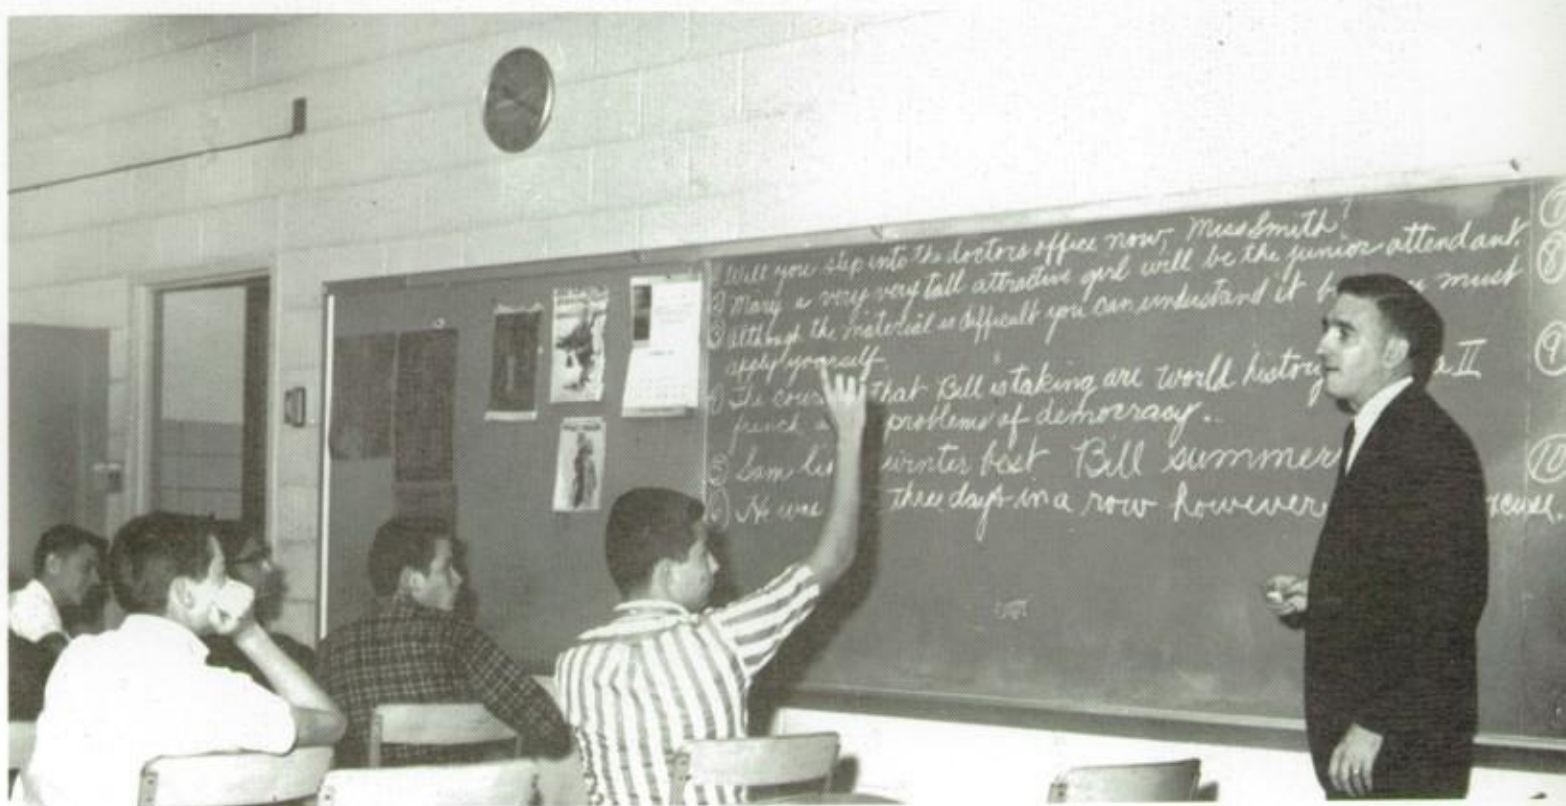 Will you step into the doctors office now, Miss Smith?
② Mary a very very tall attractive girl will be the junior attendant.
③ Although the material is difficult you can understand it must
apply yourself.
④ The that Bill is taking are world history II
french problems of democracy..
⑤ Sam winter best Bill summer
⑥ He was three days in a row however
⑧
⑨
⑩